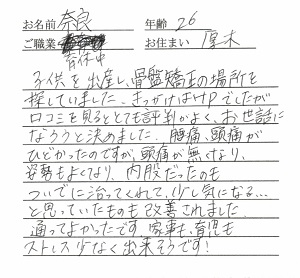 お名前 奈良 年齢 26
ご職業 育休中 お住まい 厚木
子供を出産し、骨盤矯正の場所を
探していました。きっかけはHPでしたが
口コミを見るととても評判がよく、お世話に
なろうと決めました。腰痛、頭痛が
ひどかったのですが、頭痛が無くなり、
姿勢もよくなり、内股だったのも
ついでに治ってくれて、少し気になる…
と思っていたものも改善されました。
通ってよかったです。家事も、育児も
ストレス少なく出来そうです!